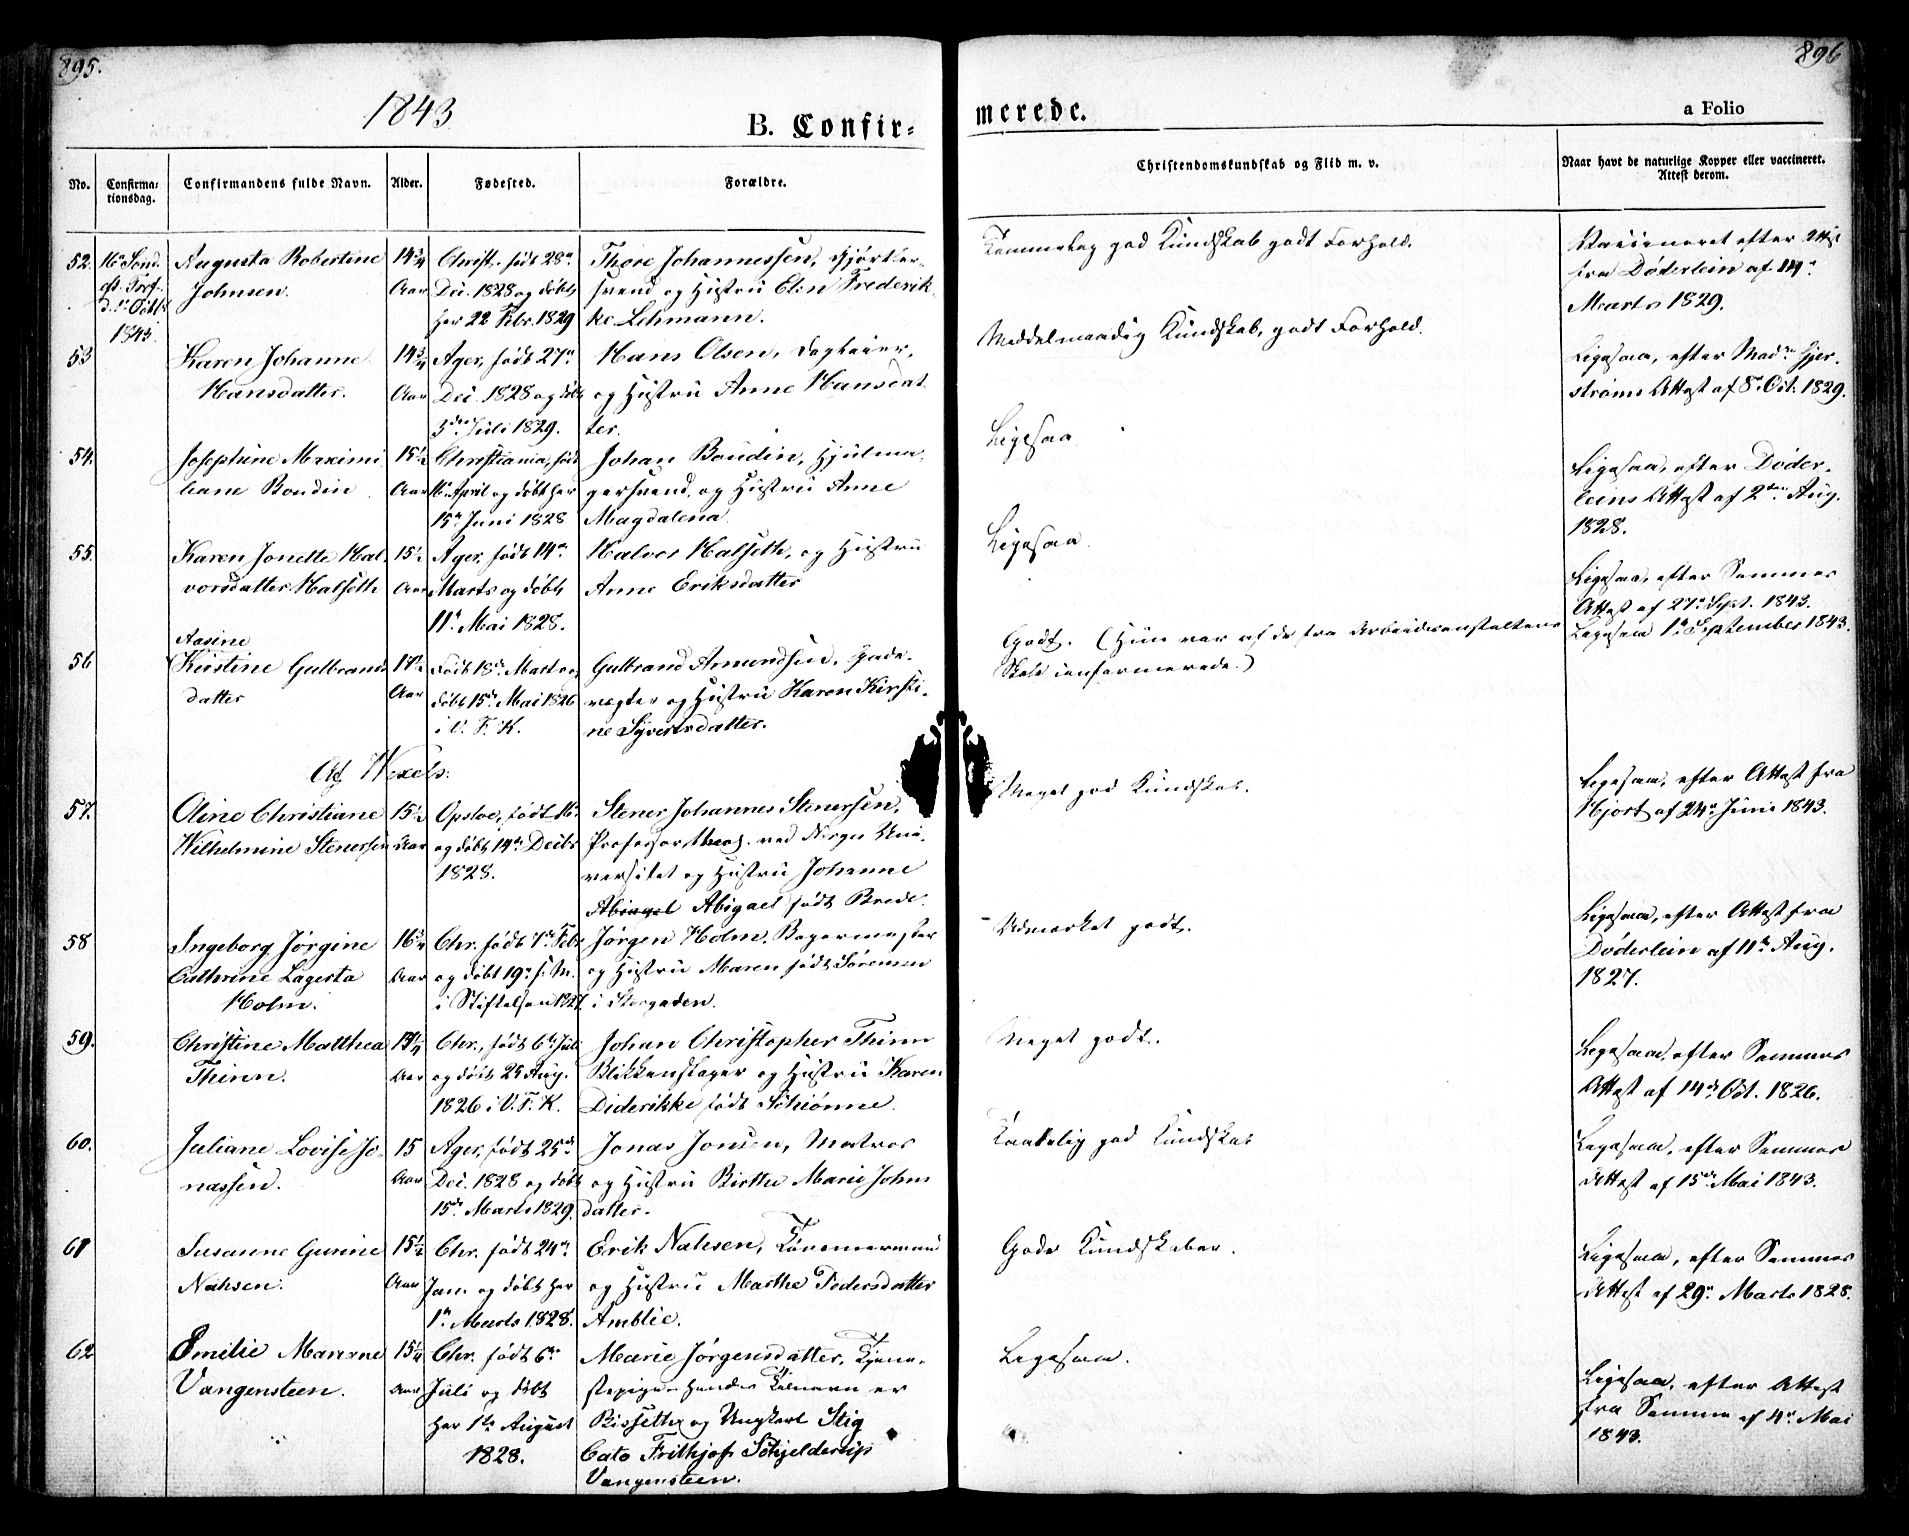 895.
1843
B. Confir-
No.
Confirma-
tionsdag.
Confirmandens fulde Navn.
Alder.
Fødested.
Forældre.
52. 16de Sønd. Augusta Robertine 14 3/4 Christ. født 28de Thore Johannessen, Gjørtler-
Johnsen. Aar Dec. 1828 og døbt svend og Hustru Elin Frederik-
1843. her 22 Febr. 1829 ke Lehmann.
53 Karen Johanne 14 3/4 Ager, født 27de Hans Olsen, Dagleier,
Hansdatter. Aar Dec. 1828 og døbt og Hustru Anne Hansdat
5de Juli 1829. ter.
54. Josephine Maximi 15 1/2 Christiania, født Johan Boudin, Hjulma-
liane Boudin Aar 16 April og døbt her gersvend, og Hustru Anne
15de Juni 1828 Magdalena
55. Karen Jonette Hal 15 1/2 Ager, født 14de Halvor Halseth, og Hustru
vorsdatter Halseth Aar Marts og døbt Anne Eriksdatter
11te Mai 1828.
Aasine
56 Kirstine Gulbrands 17 1/2 Født 18de Marts og Gulbrand Amundsen, Gade-
datter Aar døbt 15de Mai 1826 vægter og Hustru Karen Kirsti-
i V. F. K. ne Syversdatter.
Af Wexels:
57. Oline Christiane 15 1/2 Opsloe, født 16 Stener Johannes Stenersen,
Wilhelmine Stenersen Aar og døbt 14de Decbr Professor theol. ved Norges Uni-
1828. versitet og Hustru Johanne
Abigael født Brede.
58 Ingeborg Jørgine 16 3/4 Chr. født 7de Febr Jørgen Holm, Bagermester
Cathrine Lagerta Aar og døbt 19de s. M. og Hustru Maren født Sørensen
Holm. i Stiftelsen 1827. i Storgaden.
59. Christine Matthea Chr., født 6te Juli Johan Christopher Thinn
Thinn. Aar og døbt 25 Aug. Blikkenslager og Hustru Karen
1826 i V. F. K. Diderikke født Schiønne.
60. Juliane Lovise Jo- 15 Ager, født 25de Jonas Jonsen, Matros
nassen. Aar Dec. 1828 og døbt og Hustru Birthe Marie Johns
15de Marts 1829. datter.
61 Susanne Gunine 15 1/2 Chr. født 24de Erik Nahsen, Tømmermand
Nahsen. Aar Jan. og døbt her og Hustru Marthe Pedersdatter
1te Marts 1828. Amblie.
62 Emilie Marene 15 1/4 Chr. født 6te Marie Jørgensdatter, Tjene-
Vangensteen. Aar Juli og døbt stepige hendes Tilnavn er
her 1te August Bissetther og Ungkarl Stig
1828. Cato Frithjof Schjelderup
Vangensteen.
896
merede.
a Folio
Christendomskundskab og Flid m. v.
Naar havt de naturlige Kopper eller vaccineret.
Attest derom.
Temmelig god Kundskab godt Forhold. Vaccineret efter Attest
fra Døderlein af 14de
Marts 1829.
Middelmaadig Kundskab, godt Forhold. Ligesaa, efter Madm Hjer-
strøms Attest af 8de Oct. 1829.
Ligesaa. Ligesaa, efter Døder-
leins Attest af 2den Aug.
1828.
Ligesaa. Ligesaa, efter Semmes
Attest af 27de Sept. 1843.
Godt. (Hun var af de fra Arbeidsanstaltens Ligesaa 1te September 1843.
Skole confirmerede.)
Meget god Kundskab. Ligesaa, efter Attest fra
Hjort af 24de Juni 1843.
Udmærket godt. Ligesaa, efter Attest fra
Døderlein af 11te Aug.
1827.
Meget godt. Ligesaa, efter Semmes
Attest af 14de Oct. 1826.
Taalelig god Kundskab Ligesaa, efter Semmes
Attest af 15de Mai 1843.
Gode Kundskaber. Ligesaa, efter Semmes
Attest af 29de Marts 1828.
Ligesaa. Ligesaa, efter Attest
fra Semme af 4de Mai
1843.